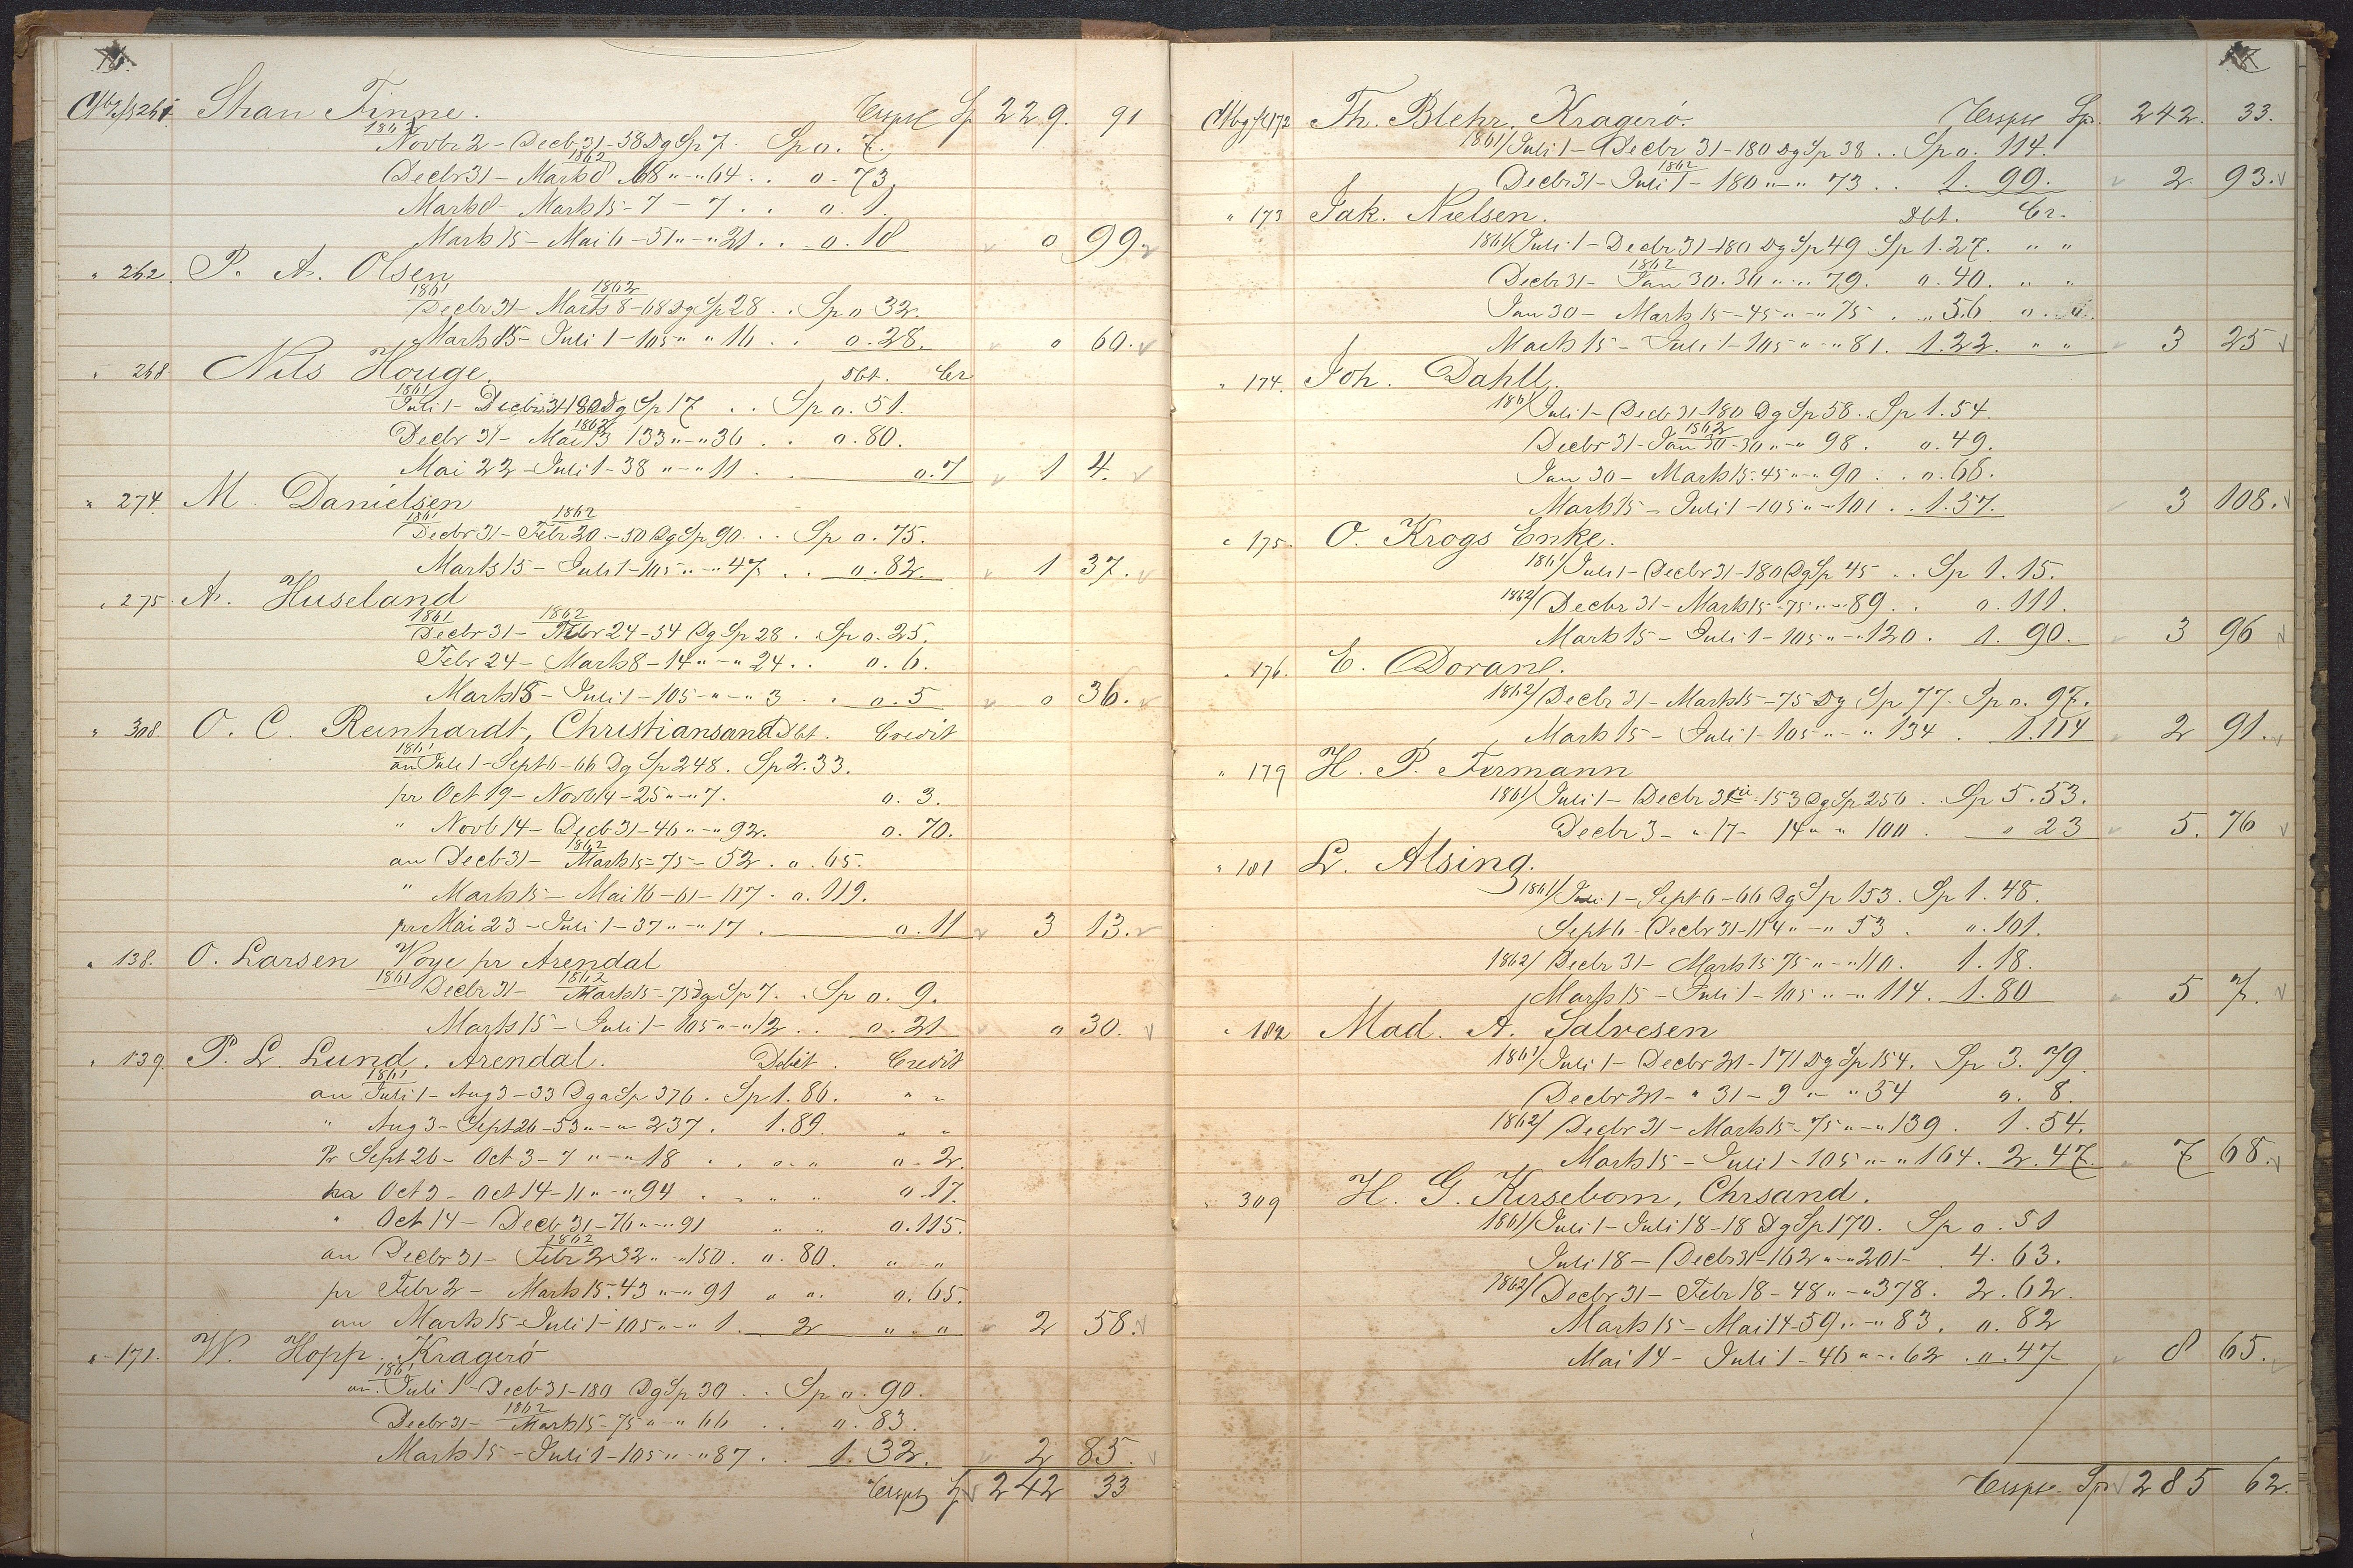 261 Shau Finne. Transpt Sp 229. 91
1861
Novbr 2 - Decb 31 - 58 Dg Sp 7. Sp o. 7.
1862
Decbr 31 - Marts 8 68 " - " 64 . . o - 73
Marts 8 - Marts 15 - 7 - 7 . . o. 1.
Marts 15 - Mai 6 - 51 " - " 21 . . o. 18 0 99.
" 262 P. A. Olsen
1861 1862
Decbr 31 - Marts 8 - 68 Dg Sp 28 . . Sp o 32.
Marts 15 - Juli 1 - 105 " " 16 . . o. 28. o 60.
" 268 Nils Houge. Dbt. Cr
1861
Juli 1 - Decbr 31 180 Dg Sp 17 . . Sp o. 51.
1862
Decbr 31 - Mai 13 133 " - " 36 . . o. 80.
Mai 22 - Juli 1 - 38 " - " 11 . o. 7 1 4.
" 274. M. Danielsen
1861 1862
Decbr 31 - Febr 20. - 50 Dg Sp 90. . . Sp o. 75.
Marts 15 - Juli 1 - 105 " - " 47 . . o. 82. 1 37.
" 275. A. Huseland
1861 1862
Decbr 31 - Febr 24 - 54 Dg Sp 28 . Sp o. 25.
Febr 24 - Marts 8 - 14 " - " 24 . . o. 6.
Marts 15 - Juli 1 - 105 - " - " 3 . . o. 5 o 36.
" 308. O. C. Reinhardt, Christiansand Dbt. Credit
1861
an Juli 1 - Sept 6 - 66 Dg Sp 248. Sp 2. 33.
pr Oct 19 - Novb 14 - 25 " - " 7. o. 3.
" Novb 14 - Decb 31 - 46 " - " 92. o. 70.
1862
an Decb 31 - Marts 15 - 75 - 52 . o. 65.
" Marts 15 - Mai 16 - 61 - 117 - o. 119.
pr Mai 23 - Juli 1 - 37 " - " 17 . o. 11 3 13.
" 138. O. Larsen Voye pr Arendal
1861 1862
Decbr 31 - Marts 15 - 75 Dg Sp 7. . Sp o. 9.
Marts 15 - Juli 1 - 105 " - " 12 . . o. 21 o 30.
" 139. P. L. Lund. Arendal. Debit. Credit
1861
an Juli 1 - Aug 3 - 33 Dg a Sp 376. Sp 1. 86. " "
" Aug 3 - Sept 26 - 53 " - " 237. 1. 89. " "
Pr Sept 26 - Oct 3 - 7 " - " 18 . . o. " o - 2.
pr Oct 3 - Oct 14 - 11 " - " 94 . " " " o. 17.
" Oct 14 - Decb 31 - 76 " - " 91 " " o. 115.
1862
an Decbr 31 - Febr 2 32 " - " 150. o. 80. " - "
pr Febr 2 - Marts 15. 43 " - " 91 " ". o. 65.
an Marts 15 - Juli 1 - 105 " - " 1. 2 " " 2 58.
" - 171. W. Hopp. Kragerö
1861
an. Juli 1 - Decb 31 - 180 Dg Sp 30 . . Sp o. 90.
1862
Decbr 31 - Marts 15 - 75 " - " 66 . . o. 83.
Marts 15 - Juli 1 - 105 " - " 87 . . 1. 32. 2 85.
Transpt Sp 242 33
172 Th. Blehr, Kragerö. Transpt Sp. 242. 33.
1861/ Juli 1 - Decbr 31 - 180 Dg Sp 38 . . Sp o. 114.
1862
Decbr 31 - Juli 1 - 180 " - " 73 . . 1. 99. 2. 93.
" 173 Jak. Nielsen. Dbt. Cr.
1861/ Juli 1 - Decbr 31 - 180 Dg Sp 49 Sp 1. 27. " "
1862
Decbr 31 - Jan 30. 30 " - " 79. o. 40. " "
Jan 30 - Marts 15 - 45 " - " 75 . " 56
Marts 15 - Juli 1 - 105 " - " 81. 1. 22. " " 3 25
" 174. Joh. Dahll.
1861/ Juli 1 - Decb 31 - 180 Dg Sp 58. Sp 1. 54.
1862
Decbr 31 - Jan 30 - 30 " - " 98. o. 49.
Jan 30 - Marts 15 - 45 " - " 90 . . o. 68.
Marts 15 - Juli 1 - 105 " - " 101 . . 1. 57. 3 108.
" 175. O. Krogs Enke.
1861/ Juli 1 - Decbr 31 - 180 Dg Sp 45 . . Sp 1. 15.
1862/ Decbr 31 - Marts 15 - 75 " - " 89 . . o. 111.
Marts 15 - Juli 1 - 105 " - " 120. 1. 90. 3 96
" 176. E. Dorane.
1862/ Decbr 31 - Marts 15 - 75 Dg Sp 77. Sp o. 97.
Marts 15 - Juli 1 - 105 " - " 134 . 1. 114 2 91.
" 179 H. P. Fermann
1861/ Juli 1 - Decbr 3 - 153 Dg Sp 250 . . Sp 5. 53.
Decbr 3 - " 17 - 14 " " 100 . o 23 5. 76
" 181 L. Alsing.
1861/ Juli 1 - Sept 6 - 66 Dg Sp 153. Sp 1. 48.
Sept 6 - Decbr 31 - 114 " - " 53 . o. 101.
1862/ Decbr 31 - Marts 15 75 " - " 110. 1. 18.
Marts 15 - Juli 1 - 105 " - " 114. 1. 80 5 7.
" 182 Mad. A. Salvesen
1861/ Juli 1 - Decbr 21 - 171 Dg Sp 154. Sp 3. 79.
Decbr 21 - " 31 - 9 " - " 54 o. 8.
1862/ Decbr 31 - Marts 15 - 75 " - " 139. 1. 54.
Marts 15 - Juli 1 - 105 " - " 164. 2. 47. 7 68.
" 309 H. G. Kirsebom, Chrsand.
1861/ Juli 1 - Juli 18 - 18 Dg Sp 170. Sp o. 51
Juli 18 - Decbr 31 - 162 " - " 201 - . 4. 63.
1862/ Decbr 31 - Febr 18 - 48 " - " 378. 2. 62.
Marts 15 - Mai 14 - 59 " - " 83. o. 82
Mai 14 - Juli 1 - 46 " - " 62 . o. 47 8 65.
Transpt. Sp 285 62.